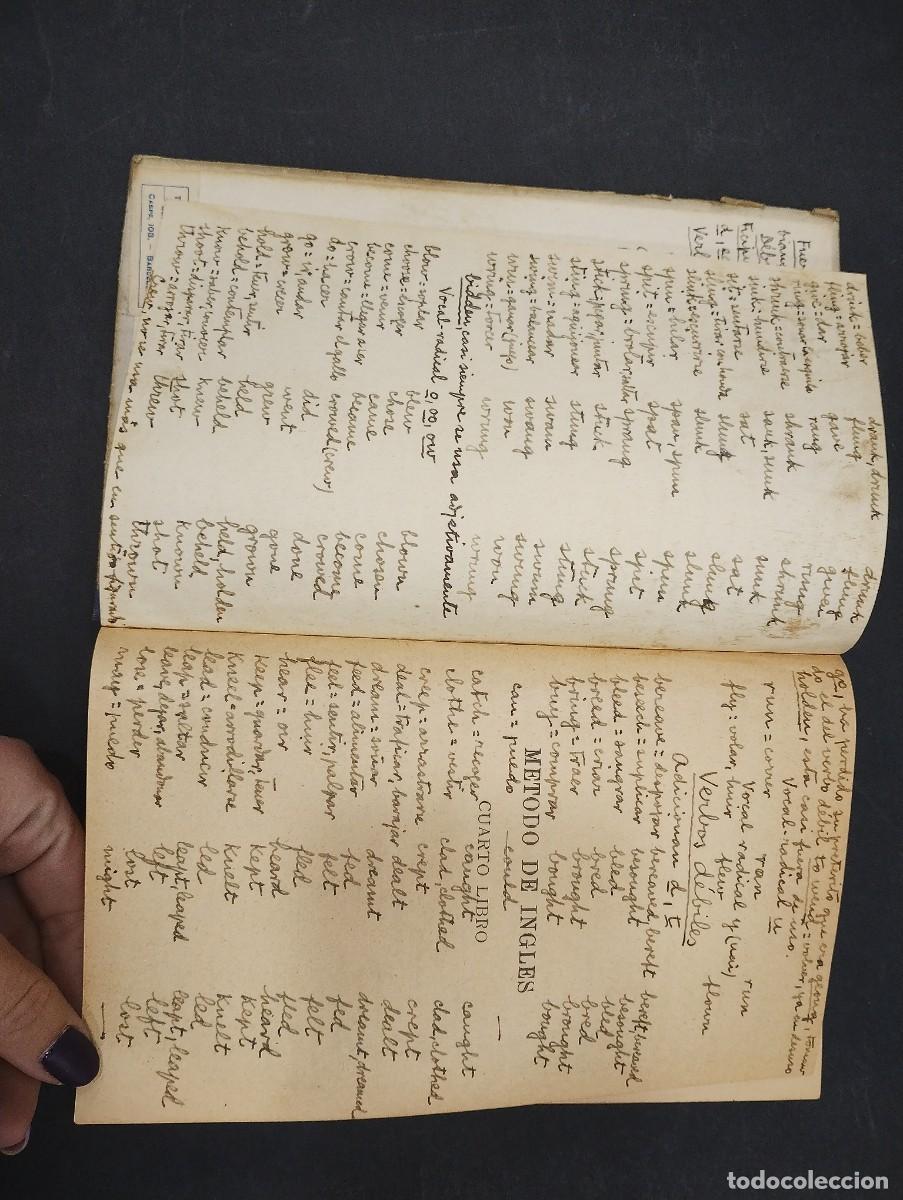 drink = beber drank, drunk drunk
fling = arrojar flung flung
give = dar gave given
ring = sonar rang rung
shrink = contraerse shrank shrunk
sink = hundirse sank, sunk sunk
sit = sentarse sat sat
sling = tirar con honda slung slung
slink = escurrirse slunk slunk
spin = hilar span, spun spun
spit = escupir spat spit
spring = brotar, saltar sprang sprung
stick = pegar, juntar stuck stuck
sting = aguijonear stung stung
swim = nadar swam swum
swing = balancear swang swung
win = ganar (juego) won won
wring = torcer wrung wrung
bidden, casi siempre se usa adjetivamente
Vocal-radical o, oo, ow
blow = soplar blew blown
choose = escoger chose chosen
come = venir came come
become = llegar a ser became become
crow = cantar el gallo crowed (crew) crowed
do = hacer did done
go = ir, andar went gone
grow = crecer grew grown
hold = tener, asir held held, holden
behold = contemplar beheld beheld
know = saber, conocer knew known
shoot = disparar, tirar shot shot
throw = arrojar, tirar threw thrown
Crew, no se usa más que en sentido figurado
Fuer
trans
Débi
Ficip
d, é
Verl
CASPE, 108. — BARC
go, ha perdido su pretérito que era geong, toman
do el del verbo débil to wend = volver, ya en desuso
holden, está casi fuera de uso.
Vocal-radical u
run = correr ran run
Vocal radial y (uai)
fly = volar, huir flew flown
Verbos débiles
Adicionan d, t
bereave = despojar bereaved bereft bereft, bereaved
beseech = suplicar besought besought
bleed = sangrar bled bled
breed = criar bred bred
bring = traer brought brought
buy = comprar bought bought
METODO DE INGLES
can = puedo could —
CUARTO LIBRO
catch = coger caught caught
clothe = vestir clad, clothed clad, clothed
creep = arrastrarse crept crept
deal = traficar, barajar dealt dealt
dream = soñar dreamt dreamt, dreamed
feed = alimentar fed fed
feel = sentir, palpar felt felt
flee = huir fled fled
hear = oir heard heard
keep = guardar, tener kept kept
kneel = arrodillarse knelt knelt
lead = conducir led led
leap = saltar leapt, leaped leapt, leaped
leave, dejar, abandonar left left
lose = perder lost lost
may = puedo might —
todocoleccion